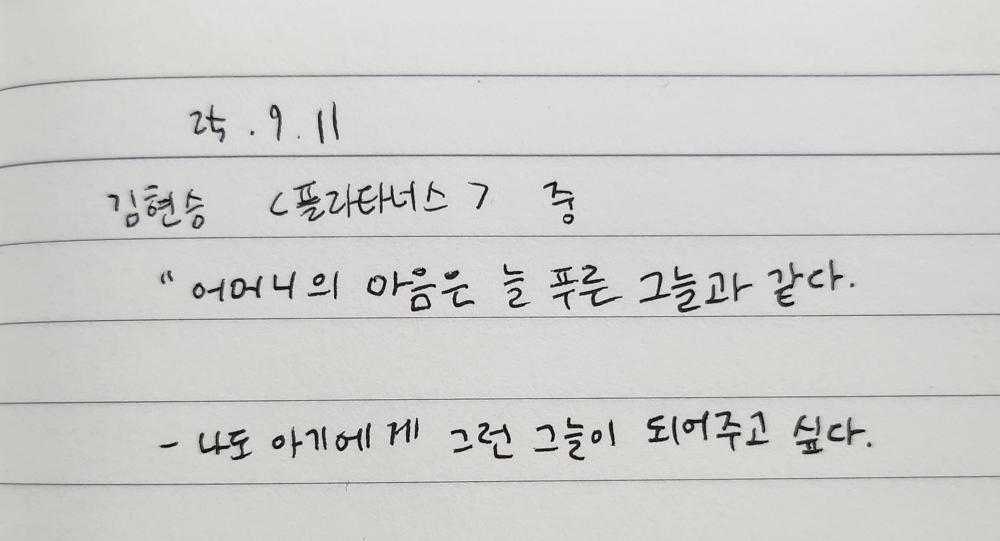 25.9.11
김현승 <플라타너스> 중
"어머니의 마음은 늘 푸른 그늘과 같다.
- 나도 아기에게 그런 그늘이 되어주고 싶다.